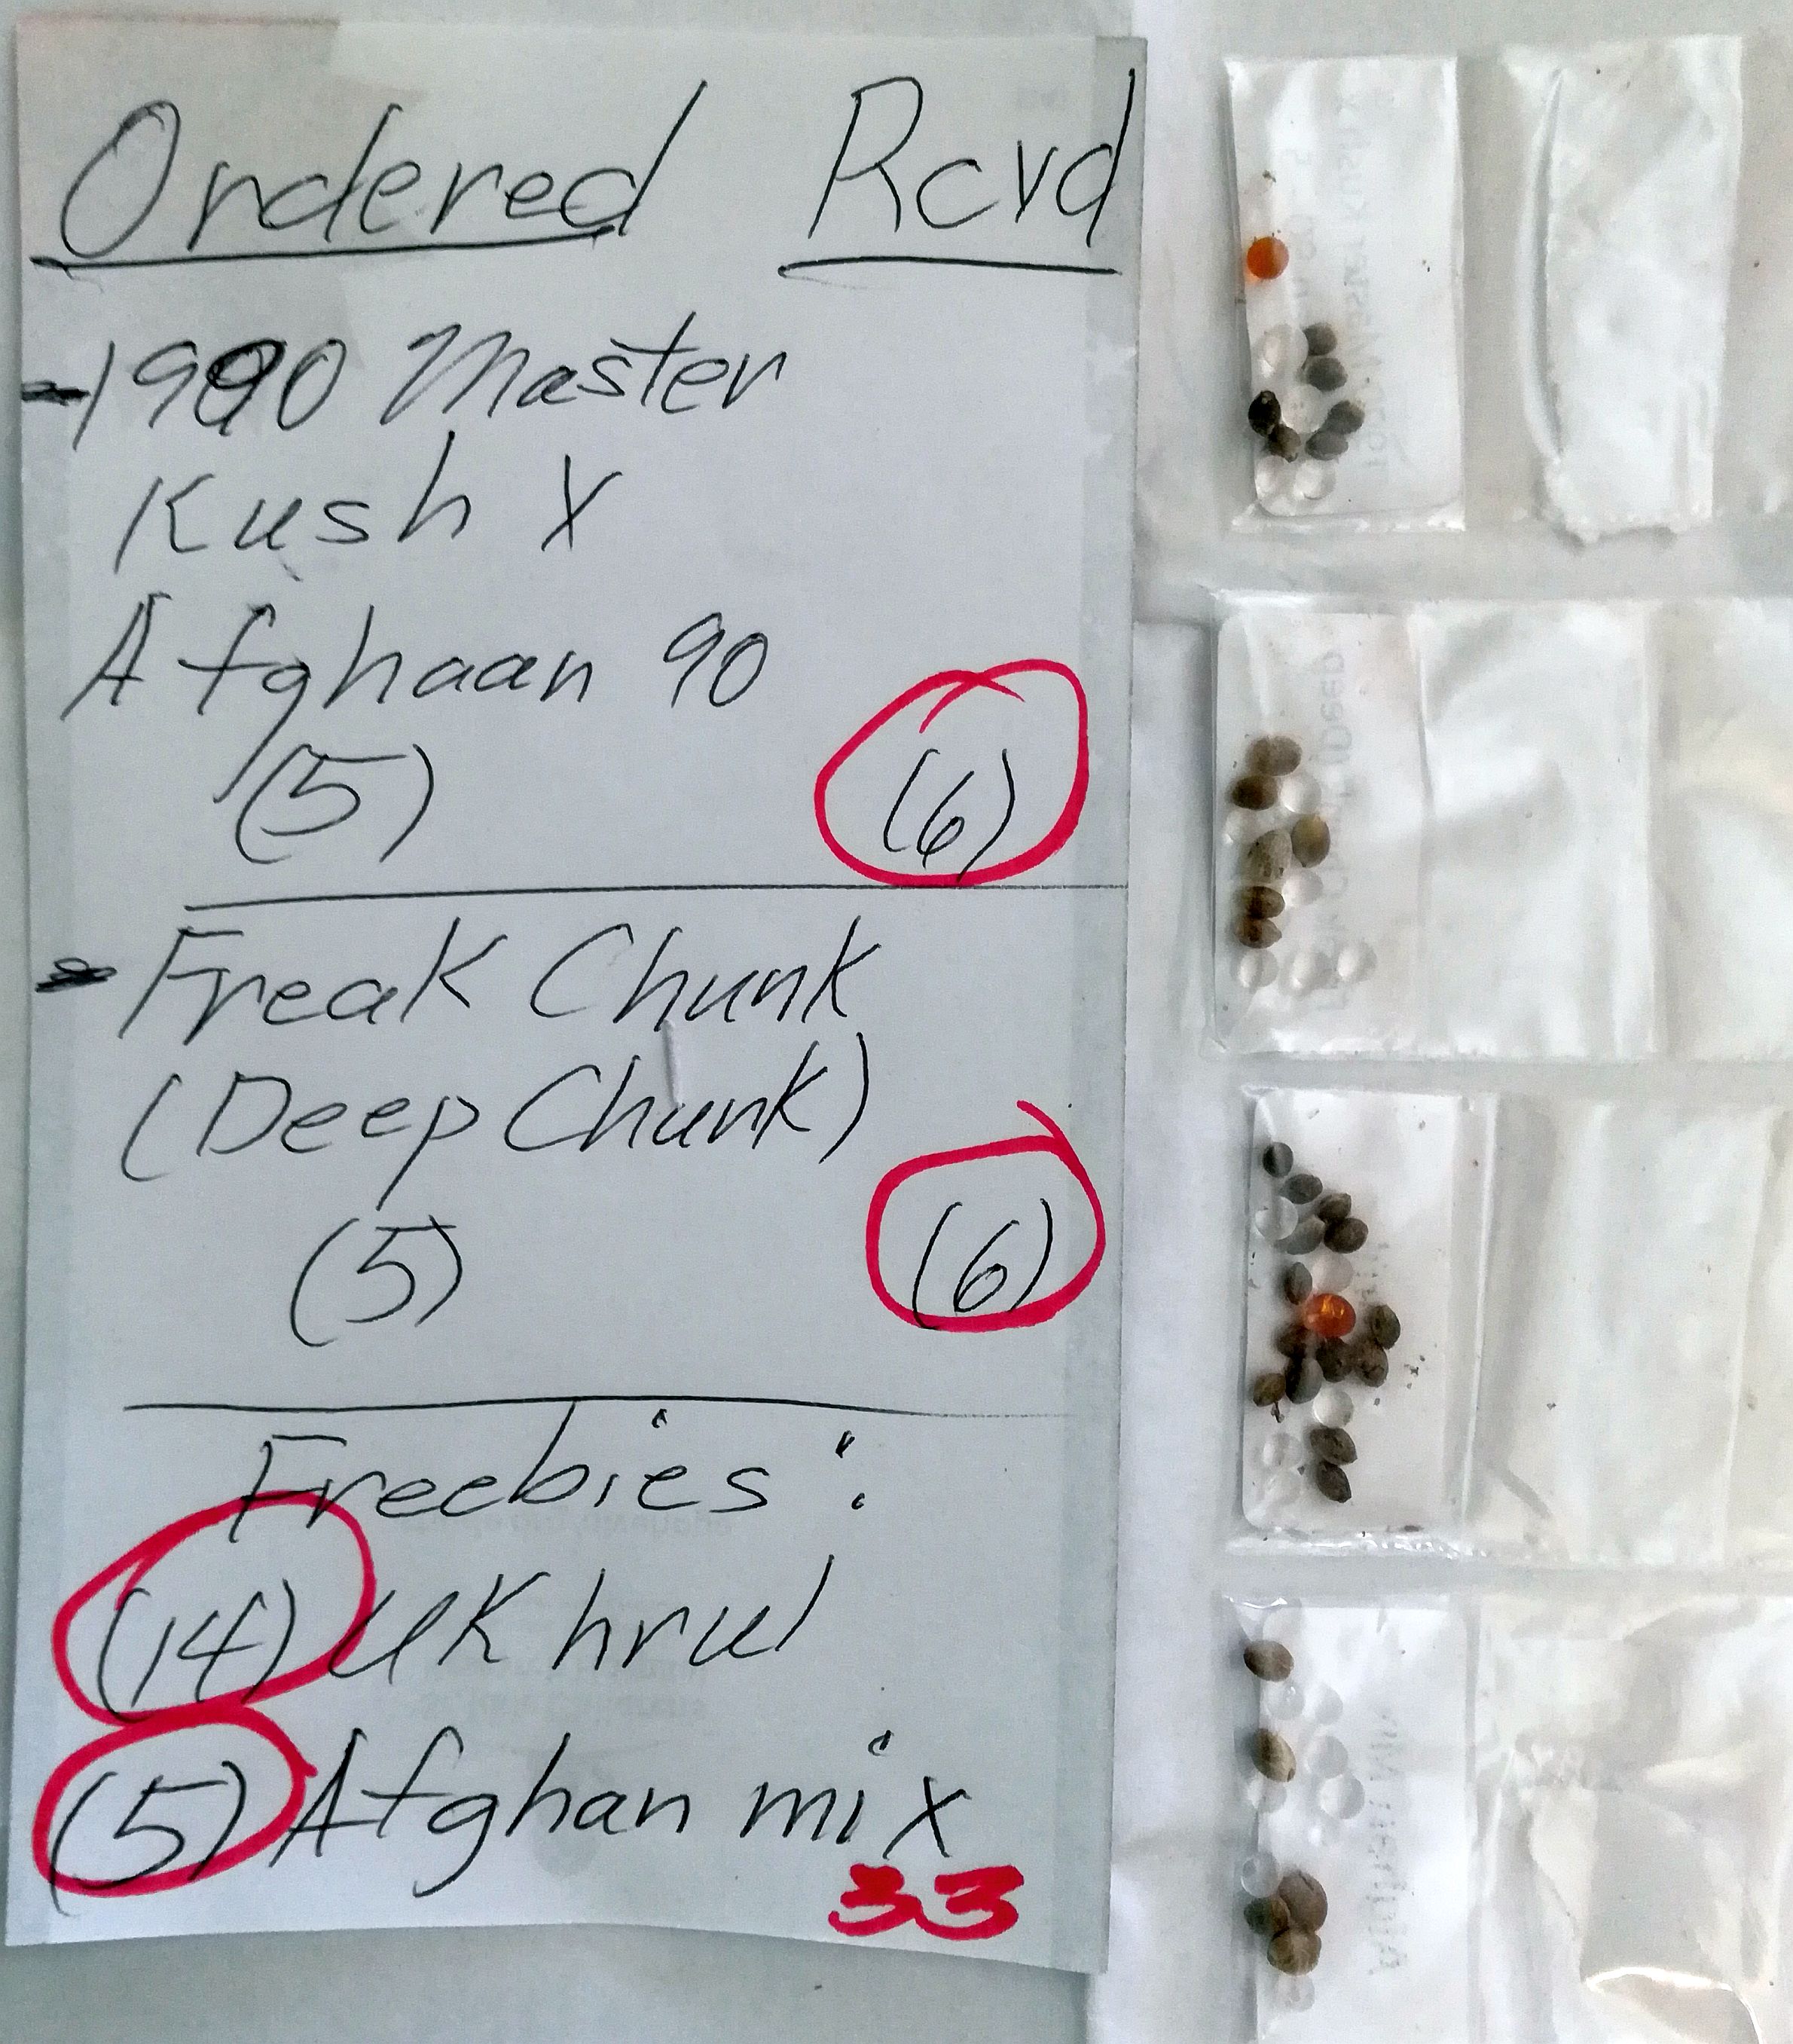 Ordered Rcvd
-1990 Master
Kush X
Afghaan 90
(5) (6)
- Freak Chunk
(Deep Chunk)
(5) (6)
Freebies:
(14) UK hrul
(5) Afghan mix
33